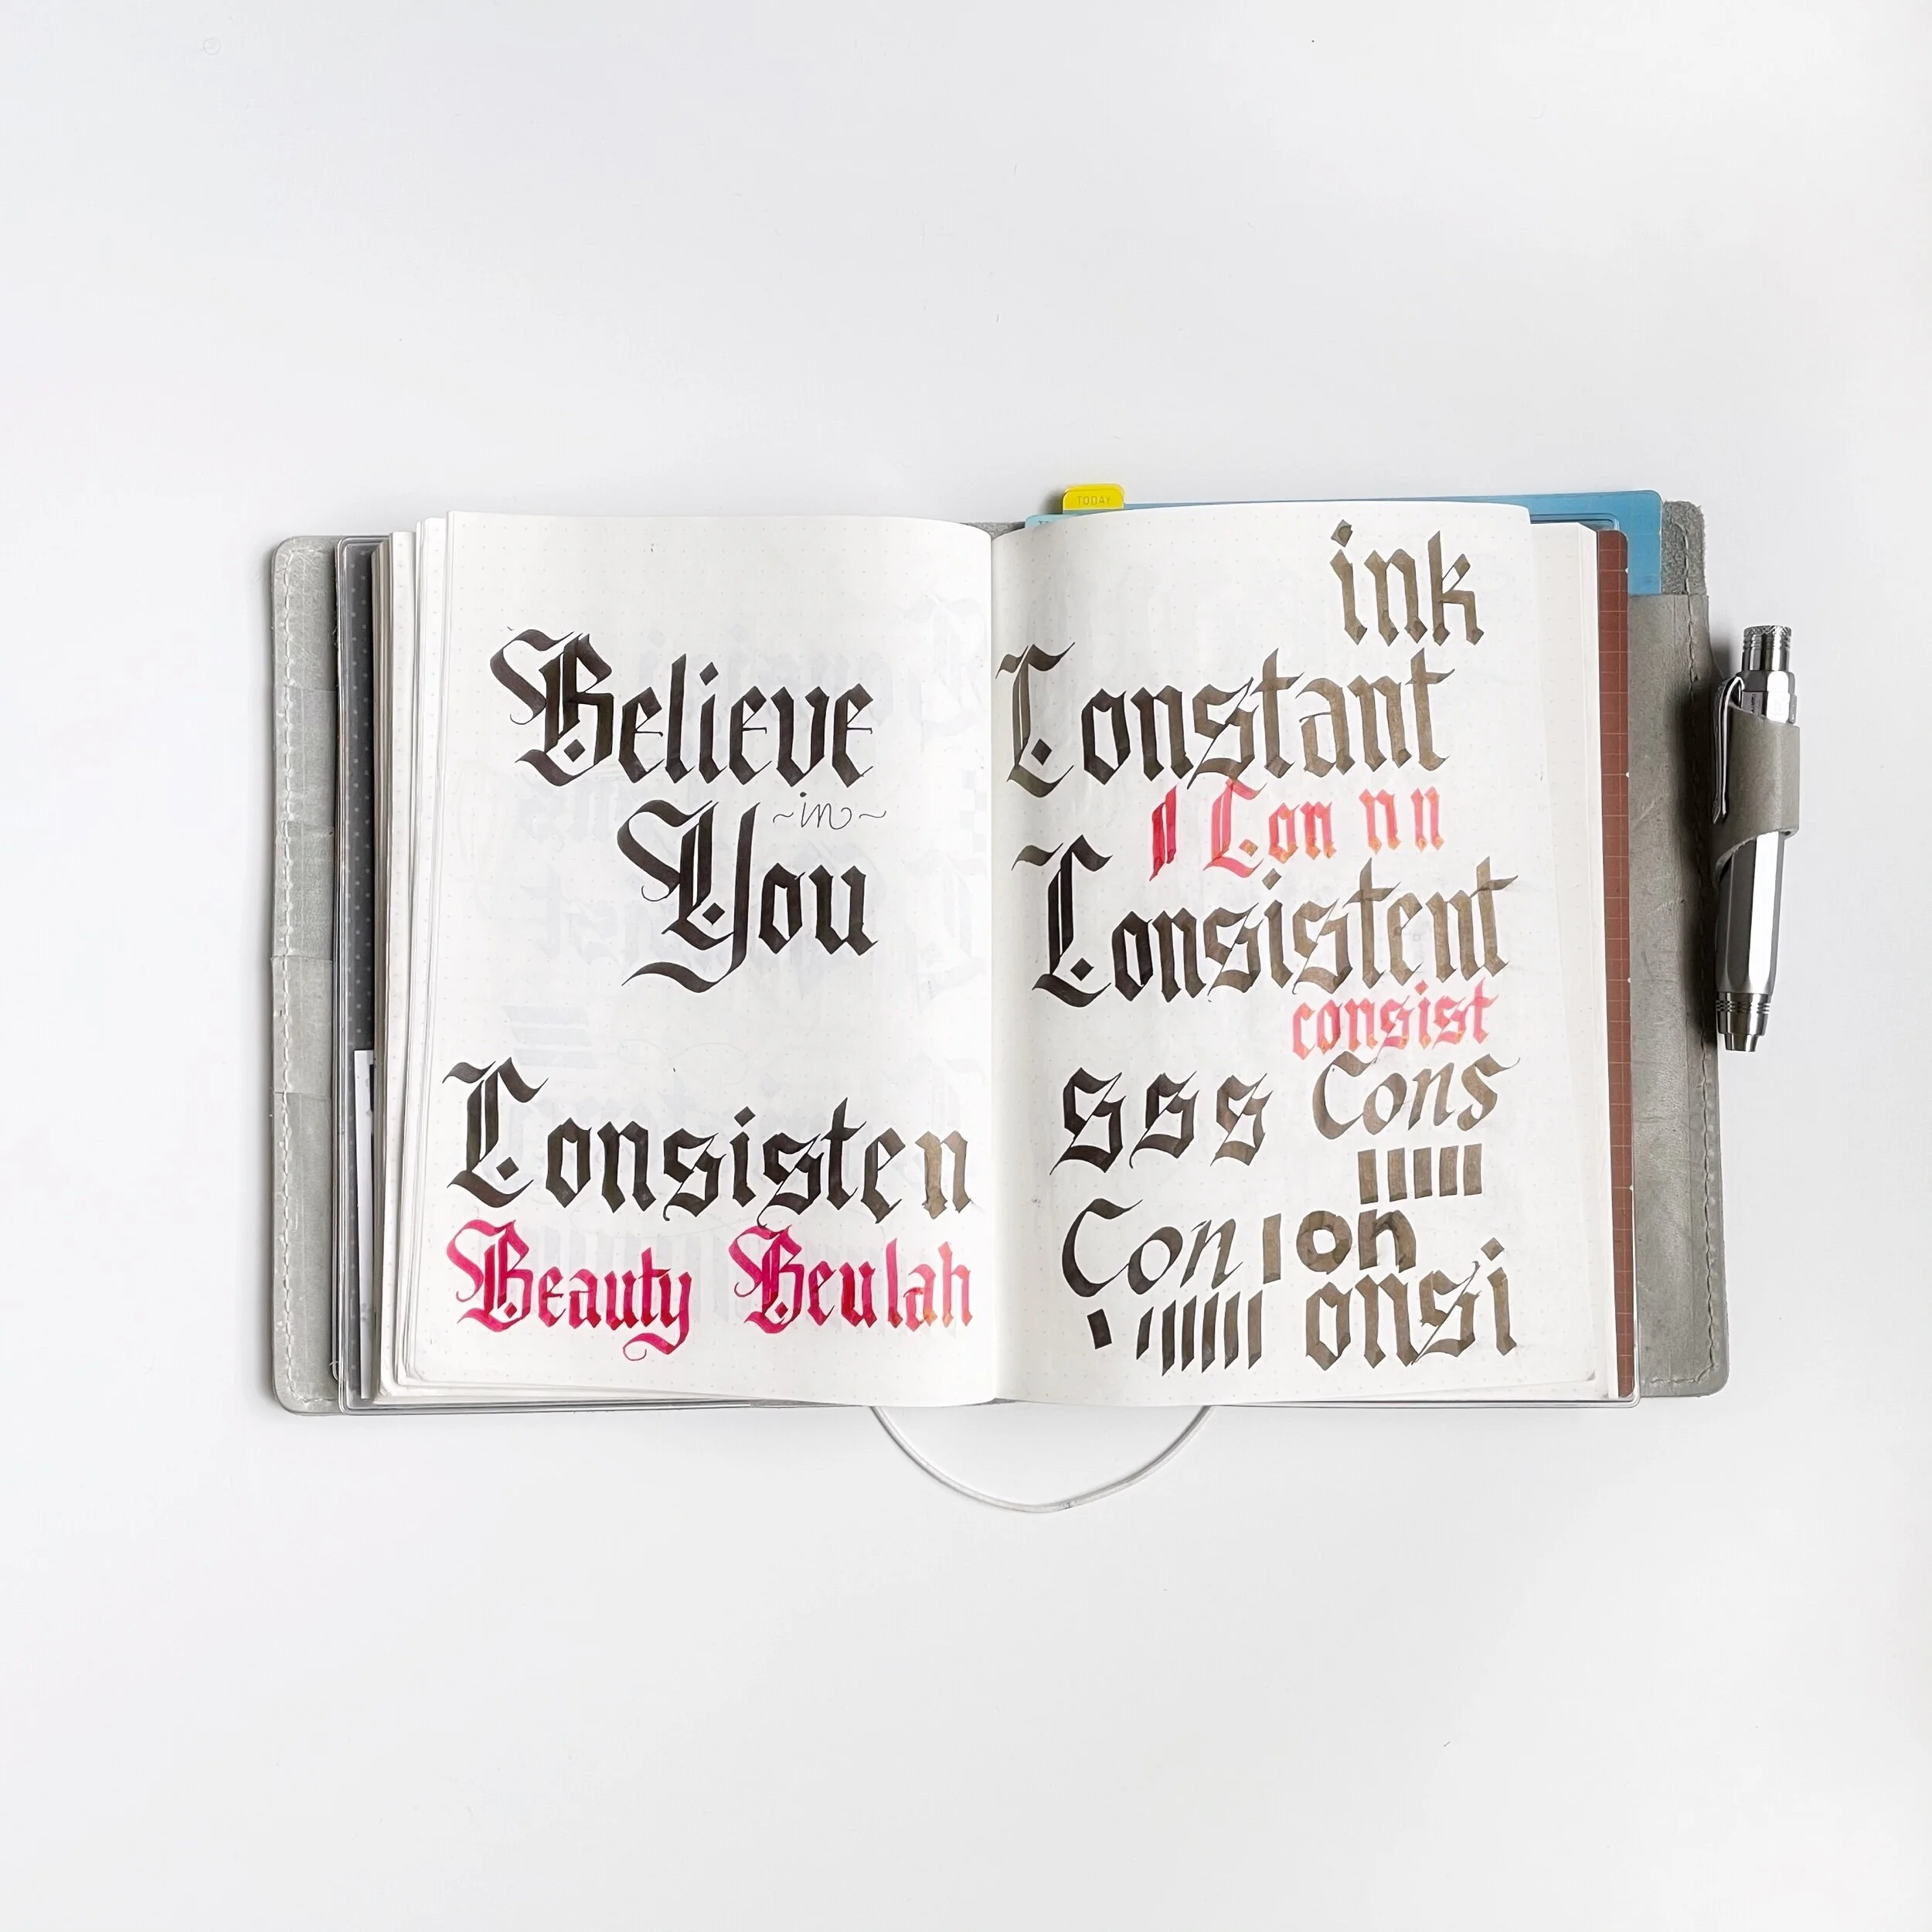 Believe
~in~
You
Consisten
Beauty Beulah
TODAY
ink
Constant
Con n n
Consistent
consist
s s s Cons
Con ı on
onsi